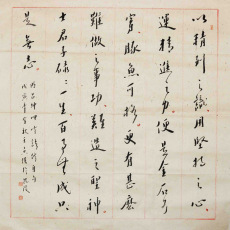 以精到之識用堅持之心
運精進之力便是金石可
穿豚魚可格更有甚麼
難做之事功難造之聖神
士君子碌碌一生百事無成只
是無志